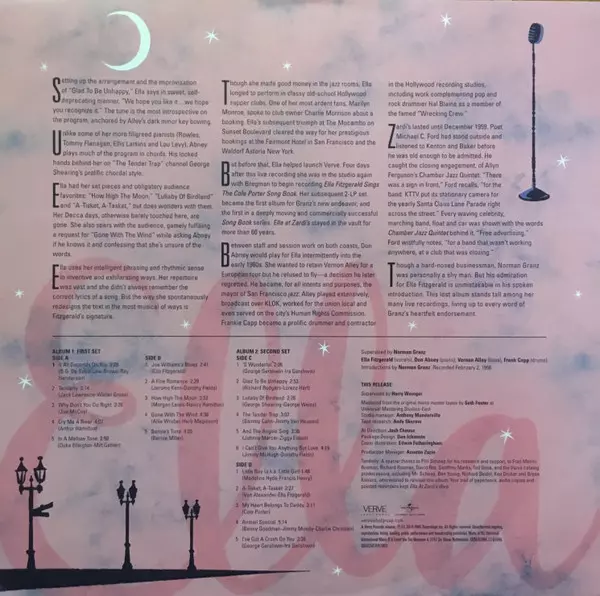 Setting up the arrangement and the improvisation
of "Glad To Be Unhappy," Ella says in sweet, self-
deprecating manner, "We hope you like it...we hope
you recognize it." The tune is the most introspective on
the program, anchored by Abney's dark minor key bowing.
Unlike some of her more filigreed pianists (Rowles,
Tommy Flanagan, Ellis Larkins and Lou Levy), Abney
plays much of the program in chords. His locked
hands behind her on "The Tender Trap" channel George
Shearing's prolific chordal style.
Ella had her set pieces and obligatory audience
favorites: "How High The Moon," "Lullaby Of Birdland"
and "A-Tisket, A-Tasket," but does wonders with them.
Her Decca days, otherwise barely touched here, are
gone. She also spars with the audience, gamely fulfilling
a request for "Gone With The Wind" while asking Abney
if he knows it and confessing that she's unsure of the
words.
Ella uses her intelligent phrasing and rhythmic sense
to inventive and exhilarating ways. Her repertoire
was vast and she didn't always remember the
correct lyrics of a song. But the way she spontaneously
redesigns the text in the most musical of ways is
Fitzgerald's signature.
Though she made good money in the jazz rooms, Ella
longed to perform in classy old-school Hollywood
supper clubs. One of her most ardent fans, Marilyn
Monroe, spoke to club owner Charlie Morrison about a
booking. Ella's subsequent triumph at The Mocambo on
Sunset Boulevard cleared the way for her prestigious
bookings at the Fairmont Hotel in San Francisco and the
Waldorf Astoria New York.
But before that, Ella helped launch Verve. Four days
after this live recording she was in the studio again
with Bregman to begin recording Ella Fitzgerald Sings
The Cole Porter Song Book. Her subsequent 2-LP set
became the first album for Granz's new endeavor, and
the first in a deeply moving and commercially successful
Song Book series. Ella at Zardi's stayed in the vault for
more than 60 years.
Between staff and session work on both coasts, Don
Abney would play for Ella intermittently into the
early 1960s. She wanted to retain Vernon Alley for a
European tour but he refused to fly—a decision he later
regretted. He became, for all intents and purposes, the
mayor of San Francisco jazz: Alley played extensively,
broadcast over KLOK, worked for the union local and
even served on the city's Human Rights Commission.
Frankie Capp became a prolific drummer and contractor
in the Hollywood recording studios,
including work complementing pop and
rock drummer Hal Blaine as a member of
the famed "Wrecking Crew."
Zardi's lasted until December 1959. Poet
Michael C. Ford had stood outside and
listened to Kenton and Baker before
he was old enough to be admitted. He
caught the closing engagement, of Allyn
Ferguson's Chamber Jazz Quintet. "There
was a sign in front," Ford recalls, "for the
band. KTTV put its stationary camera for
the yearly Santa Claus Lane Parade right
across the street." Every waving celebrity,
marching band, float and car was shown with the words
Chamber Jazz Quintet behind it. "Free advertising,"
Ford wistfully notes, "for a band that wasn't working
anywhere, at a club that was missing."
Though a hard-nosed businessman, Norman Granz
was personally a shy man. But his admiration
for Ella Fitzgerald is unmistakable in his spoken
introduction. This lost album stands tall among her
many live recordings, living up to every word of
Granz's heartfelt endorsement.
ALBUM 1: FIRST SET
SIDE A
1 It All Depends On You
2 Tenderly 3:14
(Jack Lawrence-Walter Gross)
3 Why Don't You Do Right
(Joe McCoy)
4 Cry Me A River
(Arthur Hamilton)
5 In A Mellow Tone
(Duke Ellington-Milt Gabler)
SIDE B
1 Joe Williams's Blues 2:41
(Ella Fitzgerald)
2 A Fine Romance
(Jerome Kern-Dorothy Fields)
3 How High The Moon
(Morgan Lewis-Nancy Hamilton)
4 Gone With The Wind
(Allie Wrubel-Herb Magidson)
5 Bernie's Tune
(Bernie Miller)
ALBUM 2: SECOND SET
SIDE C
1 'S Wonderful
(George Gershwin-Ira Gershwin)
2 Glad To Be Unhappy
(Richard Rodgers-Lorenz Hart)
3 Lullaby Of Birdland
(George Shearing-George Weiss)
4 The Tender Trap
(Sammy Cahn-Jimmy Van Heusen)
5 And The Angels Sing
(Johnny Mercer-Ziggy Elman)
6 I Can't Give You Anything But Love
(Jimmy McHugh-Dorothy Fields)
SIDE D
1 Little Boy
(Madeline Hyde-Francis Henry)
2 A-Tisket, A-Tasket
(Van Alexander-Ella Fitzgerald)
3 My Heart Belongs To Daddy
(Cole Porter)
4 Airmail Special
(Benny Goodman-Jimmy Mundy-Charlie Christian)
5 I've Got A Crush On You
(George Gershwin-Ira Gershwin)
Supervised by Norman Granz
Ella Fitzgerald (vocals), Don Abney (piano), Vernon Alley (bass), Frank Capp (drums)
Introductions by Norman Granz. Recorded February 2, 1956
THIS RELEASE:
Supervised by Harry Weinger
Mastered from the original mono master tapes by Seth Foster at
Art Direction: Josh Cheuse
Production Manager:
VERVE
UNIVERSAL
Ella